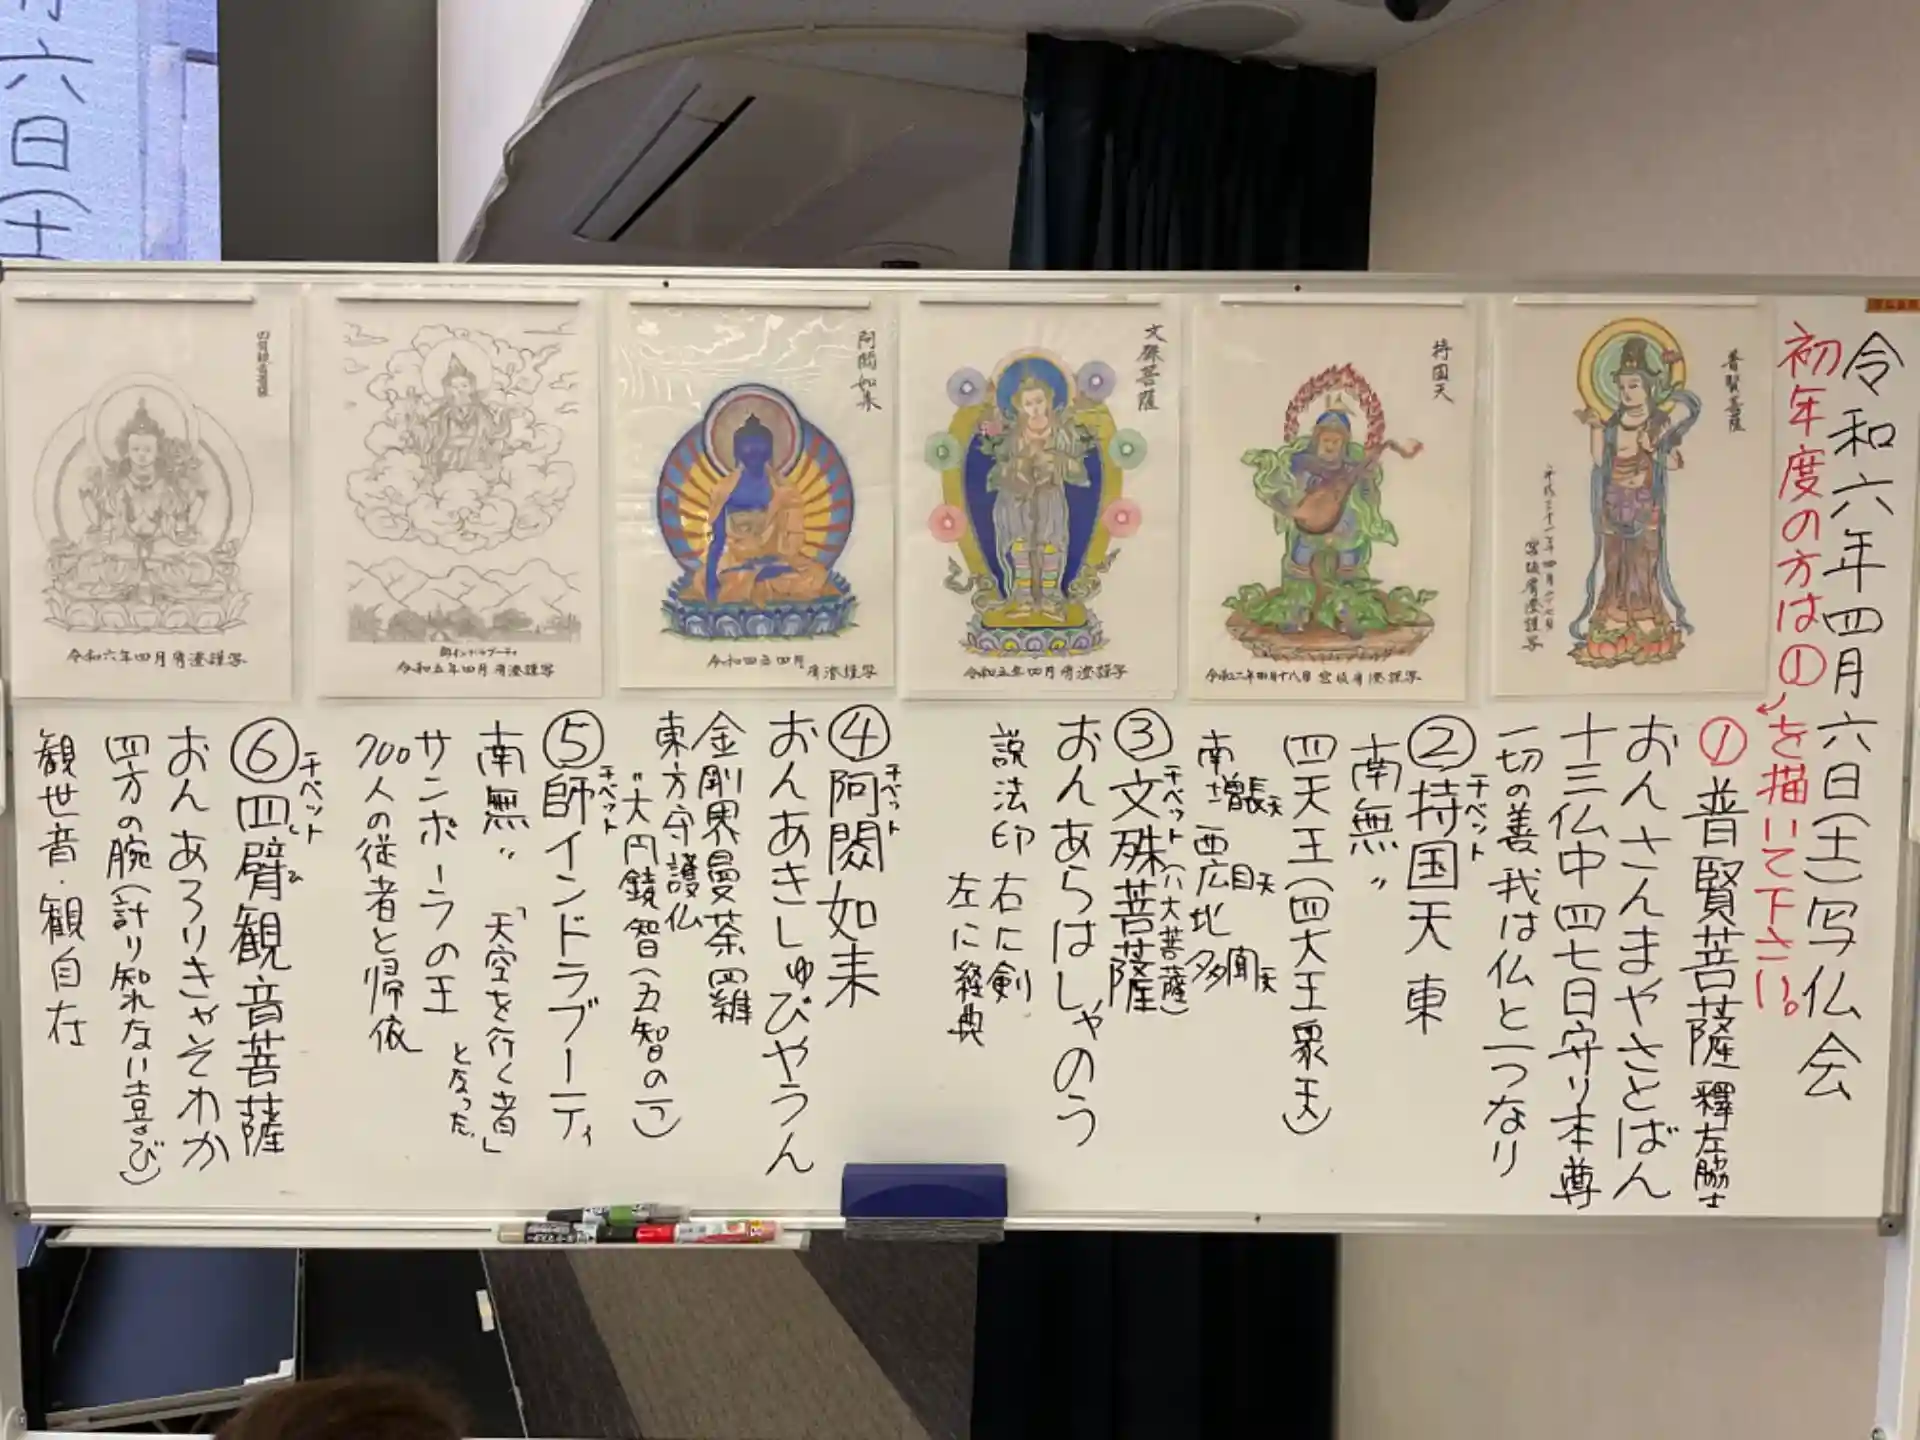 令和六年四月六日(土)写仏会
初年度の方は①を描いて下さい。
①普賢菩薩 釋左脇士
おんさんまやさとばん
十三仏中四七日守り本尊
一切の善我は仏と一つなり
②持国天 東
チベット
南無〃
四天王(四大王衆天)
南増長天 西広目天 北多聞天
③文殊菩薩
チベット(八大菩薩)
おんあらはしゃのう
説法印 右に剣
左に経典
④阿閦如来
チベット
おんあきしゅびやうん
金剛界曼荼羅
東方守護仏
〃大円鏡智(五智の一)
⑤師インドラブーティ
チベット
南無〃 「天空を行く者」
サンポーラの王となった
700人の従者と帰依
⑥四臂観音菩薩
チベット
おんあろりきゃそわか
四方の腕(計り知れない喜び)
観世音・観自在
普賢菩薩
持国天
令和二年四月十八日
文殊菩薩
令和五年四月
阿閦如来
令和四年四月
師インドラブーティ
令和五年四月
四臂観音菩薩
令和六年四月
六日(土